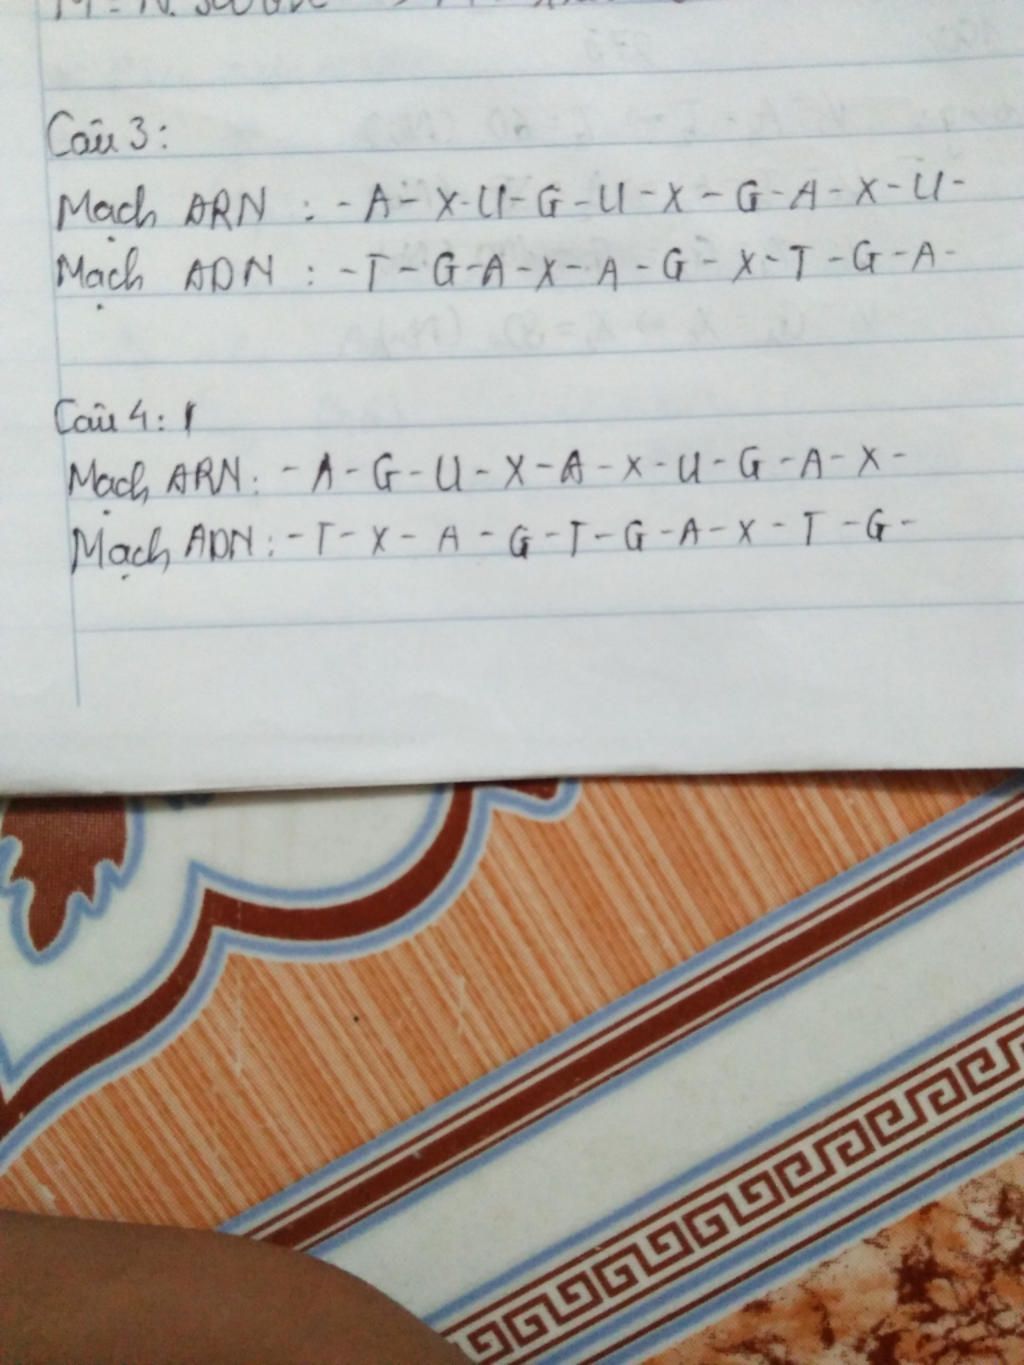 Câu 3:
Mạch ARN : - A - X - U - G - U - X - G - A - X - U -
Mạch ADN : - T - G - A - X - A - G - X - T - G - A -
Câu 4:
Mạch ARN : - A - G - U - X - A - X - U - G - A - X -
Mạch ADN : - T - X - A - G - T - G - A - X - T - G -